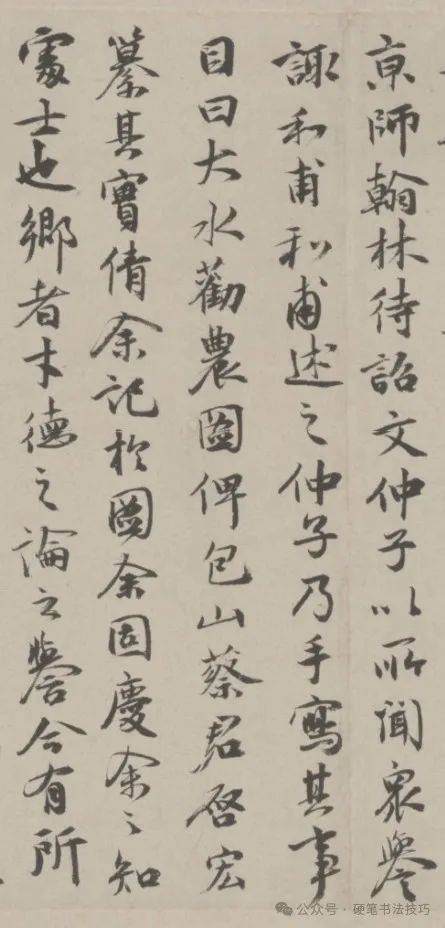 京師翰林待詔文仲子以所聞衆譽
諏和甫和甫述之仲子乃手寫其事
目曰大水勸農圖俾包山蔡君啓宏
纂其實倩余記於圖余固慶余之知
處士也鄉者才德之論之譽今有所
公众号 · 硬笔书法技巧